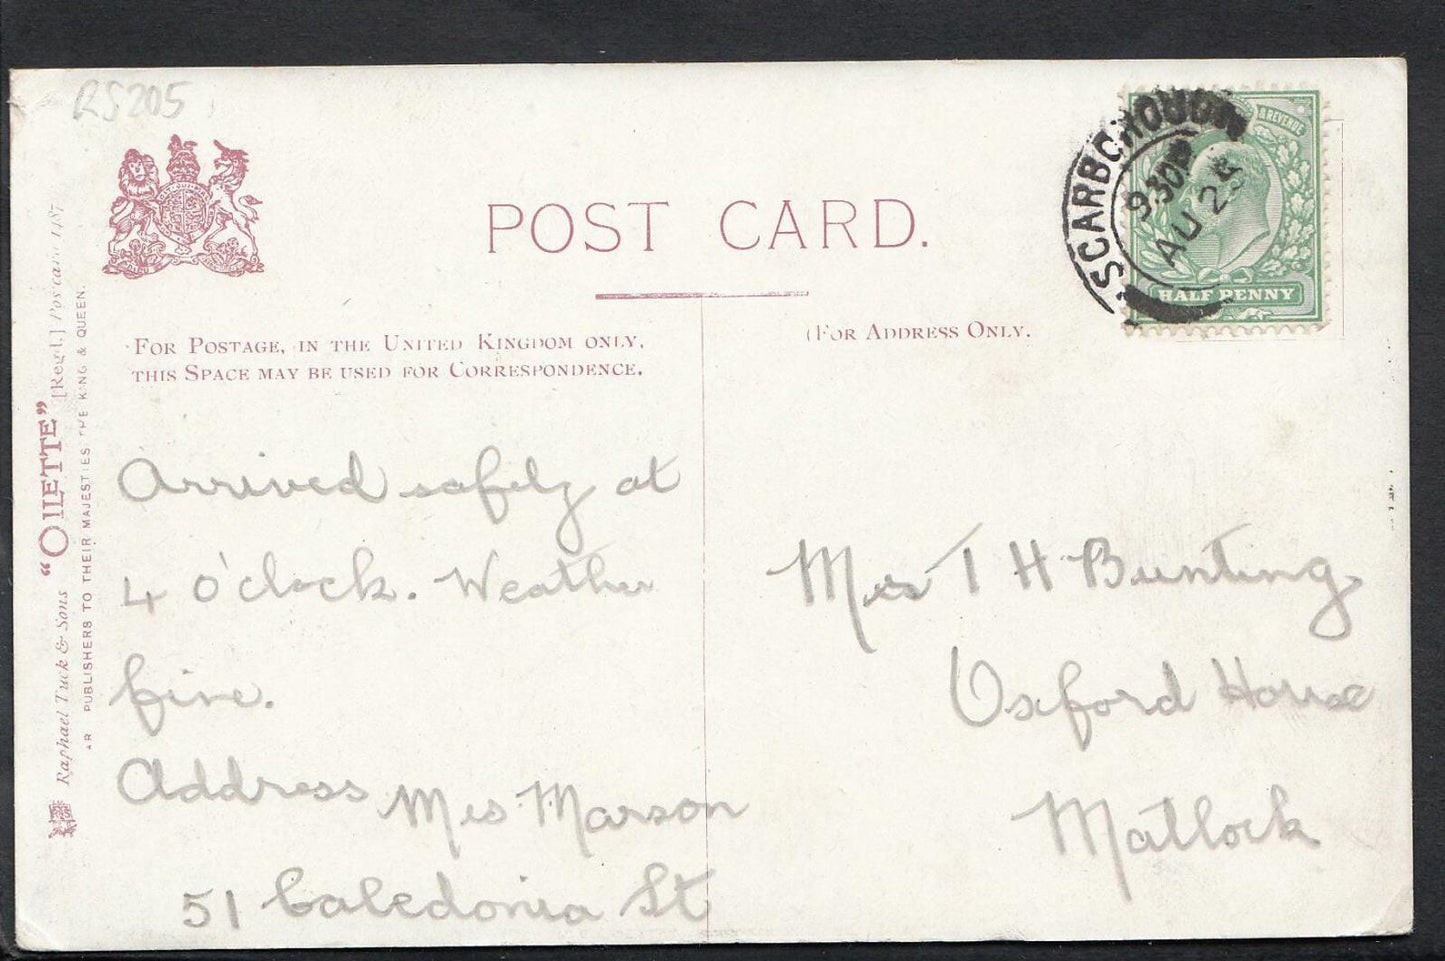 RS205
POST CARD.
FOR POSTAGE, IN THE UNITED KINGDOM ONLY,
THIS SPACE MAY BE USED FOR CORRESPONDENCE.
(FOR ADDRESS ONLY.
SCARBOROUGH
9.30P
AU 24
& REVENUE
HALF PENNY
Raphael Tuck & Sons "OILETTE" [Regd.] Postcard 1487
AR PUBLISHERS TO THEIR MAJESTIES THE KING & QUEEN.
Arrived safely at
4 o'clock. Weather
fine.
Address Mrs Marson
51 Caledonia St
Mrs T H Bunting
Oxford House
Matlock